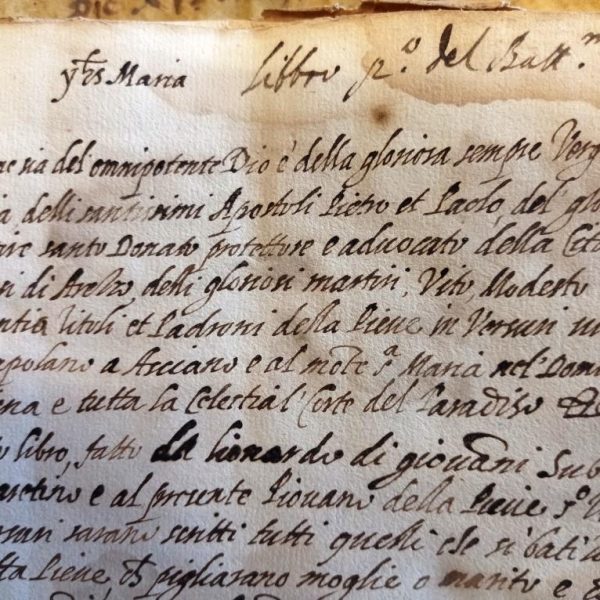 yhs Maria libbro po del Batt.m
sia del omnipotente Dio e della gloriosa sempre Verg
delli santissimi Apostoli Pietro et Paolo, del glo
santo Donato protettore e aduocato della Citta
di Arezzo delli gloriosi martiri, Vito, Modesto
Titoli et Padroni della Pieue in Versuri
apolano a Asciano e al mōte sa Maria nel Domi
ena e tutta la Celestial' Corte del Paradiso
libro, fatto da lionardo di giouāni Sub
aretino e al presente Piouano della Pieue so V
sarano scritti tutti quelli che si bati
tta Pieue, pigliarano moglie o marito e